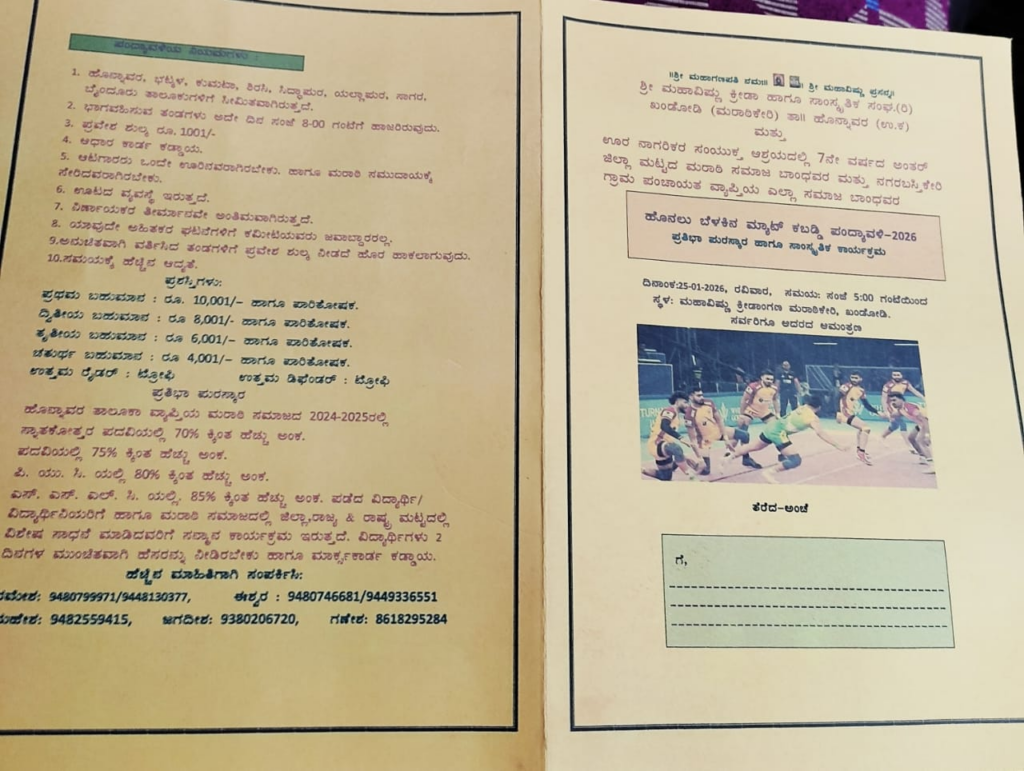 ಪಂದ್ಯಾವಳಿಯ ನಿಯಮಗಳು :
1. ಹೊನ್ನಾವರ, ಭಟ್ಕಳ, ಕುಮಟಾ, ಶಿರಸಿ, ಸಿದ್ಧಾಪುರ, ಯಲ್ಲಾಪುರ, ಸಾಗರ,
ಬೈಂದೂರು ತಾಲೂಕುಗಳಿಗೆ ಸೀಮಿತವಾಗಿರುತ್ತದೆ.
2. ಭಾಗವಹಿಸುವ ತಂಡಗಳು ಅದೇ ದಿನ ಸಂಜೆ 8-00 ಗಂಟೆಗೆ ಹಾಜರಿರುವುದು.
3. ಪ್ರವೇಶ ಶುಲ್ಕ ರೂ. 1001/-
4. ಆಧಾರ ಕಾರ್ಡ ಕಡ್ಡಾಯ.
5. ಆಟಗಾರರು ಒಂದೇ ಊರಿನವರಾಗಿರಬೇಕು. ಹಾಗೂ ಮರಾಠಿ ಸಮುದಾಯಕ್ಕೆ
ಸೇರಿದವರಾಗಿರಬೇಕು.
6. ಊಟದ ವ್ಯವಸ್ಥೆ ಇರುತ್ತದೆ.
7. ನಿರ್ಣಾಯಕರ ತೀರ್ಮಾನವೇ ಅಂತಿಮವಾಗಿರುತ್ತದೆ.
8. ಯಾವುದೇ ಅಹಿತಕರ ಘಟನೆಗಳಿಗೆ ಕಮೀಟಿಯವರು ಜವಾಬ್ದಾರರಲ್ಲ.
9.ಅನುಚಿತವಾಗಿ ವರ್ತಿಸಿದ ತಂಡಗಳಿಗೆ ಪ್ರವೇಶ ಶುಲ್ಕ ನೀಡದೆ ಹೊರ ಹಾಕಲಾಗುವುದು.
10.ಸಮಯಕ್ಕೆ ಹೆಚ್ಚಿನ ಆದ್ಯತೆ.
ಪ್ರಶಸ್ತಿಗಳು:
ಪ್ರಥಮ ಬಹುಮಾನ : ರೂ. 10,001/- ಹಾಗೂ ಪಾರಿತೋಷಕ.
ದ್ವಿತೀಯ ಬಹುಮಾನ : ರೂ 8,001/- ಹಾಗೂ ಪಾರಿತೋಷಕ.
ತೃತೀಯ ಬಹುಮಾನ : ರೂ 6,001/- ಹಾಗೂ ಪಾರಿತೋಷಕ.
ಚತುರ್ಥ ಬಹುಮಾನ : ರೂ 4,001/- ಹಾಗೂ ಪಾರಿತೋಷಕ.
ಉತ್ತಮ ರೈಡರ್ : ಟ್ರೋಫಿ ಉತ್ತಮ ಡಿಫೆಂಡರ್ : ಟ್ರೋಫಿ
ಪ್ರತಿಭಾ ಪುರಸ್ಕಾರ
ಹೊನ್ನಾವರ ತಾಲೂಕಾ ವ್ಯಾಪ್ತಿಯ ಮರಾಠಿ ಸಮಾಜದ 2024-2025ರಲ್ಲಿ
ಸ್ನಾತಕೋತ್ತರ ಪದವಿಯಲ್ಲಿ 70% ಕ್ಕಿಂತ ಹೆಚ್ಚು ಅಂಕ.
ಪದವಿಯಲ್ಲಿ 75% ಕ್ಕಿಂತ ಹೆಚ್ಚು ಅಂಕ.
ಪಿ. ಯು. ಸಿ. ಯಲ್ಲಿ 80% ಕ್ಕಿಂತ ಹೆಚ್ಚು ಅಂಕ.
ಎಸ್. ಎಸ್. ಎಲ್. ಸಿ. ಯಲ್ಲಿ. 85% ಕ್ಕಿಂತ ಹೆಚ್ಚು ಅಂಕ. ಪಡೆದ ವಿದ್ಯಾರ್ಥಿ/
ವಿದ್ಯಾರ್ಥಿನಿಯರಿಗೆ ಹಾಗೂ ಮರಾಠಿ ಸಮಾಜದಲ್ಲಿ ಜಿಲ್ಲಾ,ರಾಜ್ಯ & ರಾಷ್ಟ್ರ ಮಟ್ಟದಲ್ಲಿ
ವಿಶೇಷ ಸಾಧನೆ ಮಾಡಿದವರಿಗೆ ಸನ್ಮಾನ ಕಾರ್ಯಕ್ರಮ ಇರುತ್ತದೆ. ವಿದ್ಯಾರ್ಥಿಗಳು 2
ದಿನಗಳ ಮುಂಚಿತವಾಗಿ ಹೆಸರನ್ನು ನೀಡಿರಬೇಕು ಹಾಗೂ ಮಾರ್ಕ್ಸಕಾರ್ಡ ಕಡ್ಡಾಯ.
ಹೆಚ್ಚಿನ ಮಾಹಿತಿಗಾಗಿ ಸಂಪರ್ಕಿಸಿ:
9480799971/9448130377, ಈಶ್ವರ : 9480746681/9449336551
9482559415, ಜಗದೀಶ: 9380206720, ಗಣೇಶ: 8618295284
॥ಶ್ರೀ ಮಹಾಗಣಪತಿ ನಮಃ॥ ॥ ಶ್ರೀ ಮಹಾವಿಷ್ಣು ಪ್ರಸನ್ನ॥
ಶ್ರೀ ಮಹಾವಿಷ್ಣು ಕ್ರೀಡಾ ಹಾಗೂ ಸಾಂಸ್ಕೃತಿಕ ಸಂಘ.(ರಿ)
ಖಂಡೋಡಿ (ಮರಾಠಿಕೇರಿ) ತಾ॥ ಹೊನ್ನಾವರ (ಉ.ಕ)
ಮತ್ತು
ಊರ ನಾಗರಿಕರ ಸಂಯುಕ್ತ ಆಶ್ರಯದಲ್ಲಿ 7ನೇ ವರ್ಷದ ಅಂತರ್
ಜಿಲ್ಲಾ ಮಟ್ಟದ ಮರಾಠಿ ಸಮಾಜ ಬಾಂಧವರ ಮತ್ತು ನಗರಬಸ್ತಿಕೇರಿ
ಗ್ರಾಮ ಪಂಚಾಯತ ವ್ಯಾಪ್ತಿಯ ಎಲ್ಲಾ ಸಮಾಜ ಬಾಂಧವರ
ಹೊನಲು ಬೆಳಕಿನ ಮ್ಯಾಟ್ ಕಬಡ್ಡಿ ಪಂದ್ಯಾವಳಿ-2026
ಪ್ರತಿಭಾ ಪುರಸ್ಕಾರ ಹಾಗೂ ಸಾಂಸ್ಕೃತಿಕ ಕಾರ್ಯಕ್ರಮ
ದಿನಾಂಕ:25-01-2026, ರವಿವಾರ, ಸಮಯ: ಸಂಜೆ 5:00 ಗಂಟೆಯಿಂದ
ಸ್ಥಳ: ಮಹಾವಿಷ್ಣು ಕ್ರೀಡಾಂಗಣ ಮರಾಠಿಕೇರಿ, ಖಂಡೋಡಿ.
ಸರ್ವರಿಗೂ ಆದರದ ಆಮಂತ್ರಣ
ತೆರೆದ-ಅಂಚೆ
ಗೆ,